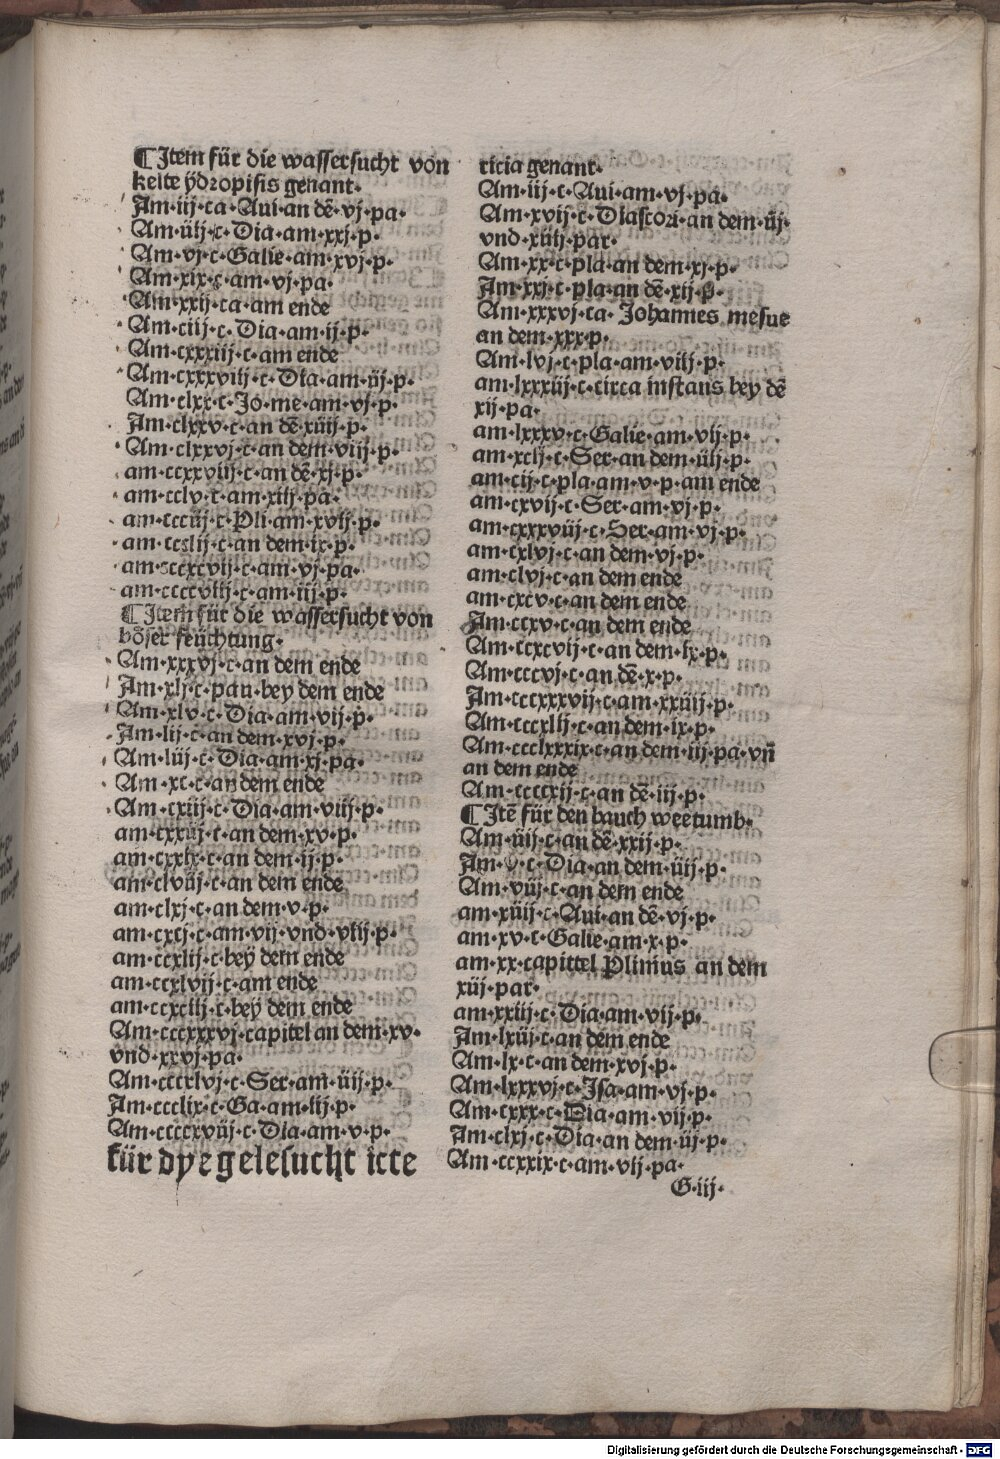 ¶Item für die wassersucht von
kelte ydropisis genant·
Am·iij·ca·Aui·an dē·vj·pa·
Am·iiij·c·Dia·am·xxj·p·
Am·vj·c·Galie·am·xvj·p·
Am·xix·c·am·vj·pa·
Am·xxij·ca·am ende
Am·ciij·c·Dia·am·ij·p·
Am·cxxxiij·c·am ende
Am·cxxxviij·c·Dia·am·iij·p·
Am·clxx·c·Jo·me·am·vj·p·
Am·clxxv·c·an dē·xiiij·p·
Am·clxxvj·c·an dem·viij·p·
am·ccxxviij·c·an dē·xj·p·
am·cclv·c·am·xiij·pa·
am·ccciij·c·Pli·am·xvij·p·
am·cccxlij·c·an dem·ix·p·
am·cccxcvij·c·am·vj·pa·
am·ccccviij·c·am·iij·p·
¶Item für die wassersucht von
böser feüchtung·
Am·xxxvj·c·an dem ende
Am·xlj·c·pau·bey dem ende
Am·xlv·c·Dia·am·vij·p·
Am·lij·c·an dem·xvj·p·
Am·liij·c·Dia·am·xj·pa·
Am·xc·c·an dem ende
Am·cxiij·c·Dia·am·viij·p·
am·cxxiij·c·an dem·xv·p·
am·cxxix·c·an dem·ij·p·
am·clviij·c·an dem ende
am·clxj·c·an dem·v·p·
am·cxcj·c·am·vij·vnd·viij·p·
am·ccxlij·c·bey dem ende
am·ccxlvij·c·am ende
am·ccxciij·c·bey dem ende
Am·cccxxxvj·capitel an dem·xv·
vnd·xxvj·pa·
Am·cccxlvj·c·Ser·am·iiij·p·
Am·ccclix·c·Ga·am·lij·p·
Am·ccccxviij·c·Dia·am·v·p·
für dye gelesucht icte
ricia genant·
Am·iij·c·Aui·am·vj·pa·
Am·xvij·c·Diascori·an dem·iij·
vnd·xiiij·par·
Am·xx·c·pla·an dem·xj·p·
Am·xxj·c·pla·an dē·xij·p·
Am·xxxvj·ca·Johannes mesue
an dem·xxx·p·
Am·lvj·c·pla·am·viij·p·
am·lxxxiij·c·circa instans bey dē
xij·pa·
am·lxxxv·c·Galie·am·vij·p·
am·xcij·c·Ser·an dem·iiij·p·
am·cij·c·pla·am·v·p·am ende
am·cxvij·c·Ser·am·vj·p·
am·cxxxviij·c·Ser·am·vj·p·
am·cxlvj·c·an dem·vj·p·
am·clvj·c·an dem ende
am·cxcv·c·an dem ende
Am·ccxv·c·an dem ende
Am·ccxcvij·c·an dem·ix·p·
Am·cccvj·c·an dē·x·p·
Am·cccxxxvij·c·am·xxiiij·p·
Am·cccxliij·c·an dem·ix·p·
Am·ccclxxxix·c·an dem·iij·pa·vñ
an dem ende
Am·ccccxij·c·an dē·iij·p·
¶Itē für den bauch weetumb·
Am·iiij·c·an dē·xxij·p·
Am·v·c·Dia·an dem·iiij·p·
Am·viij·c·an dem ende
am·xiij·c·Aui·an dē·vj·p·
am·xv·c·Galie·am·x·p·
am·xx·capittel Plinius an dem
xiij·par·
am·xxiij·c·Dia·am·vij·p·
Am·lxiij·c·an dem ende
Am·lx·c·an dem·xvj·p·
Am·lxxxvj·c·Isa·am·vj·p·
Am·cxxx·c·Dia·am·vij·p·
Am·clxj·c·Dia·an dem·iij·p·
Am·ccxxix·c·am·vij·pa·
G·iij·
Digitalisierung gefördert durch die Deutsche Forschungsgemeinschaft - DFG